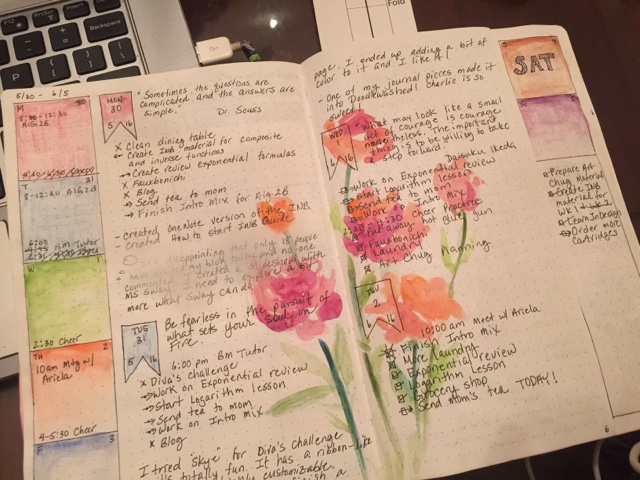 Fold
5/30 - 6/5
M
8:30-12:30
Alg 2B
8-12:30 Alg 2B
6:00
Bm Tutor
W
2:30 Cheer
TH 2
10am Mtg w/
Ariela
4-5:30 Cheer
F 3
MON
30
5 16
"Sometimes the questions are
complicated and the answers are
simple."
Dr Seuss
x Clean dining table
Create INB material for composite
and inverse functions
→ Create review exponential formulas
x Fauxbonichi
x Blog
→ Send tea to mom
→ Finish Intro Mix for Alg 2B
- Created OneNote version of the INB
- Created How to start INB Guide
disappointing that only 18 people
my work today and no one
commented. I created a
MS Sway. I need to explore a bit
more what Sway can do.
TUE
31
5 16
Be fearless in the pursuit of
what sets your soul on
fire.
6:00 pm Bm Tutor
x Diva's challenge
→ Work on Exponential review
→ Start Logarithm lesson
→ Send tea to mom
→ Work on Intro Mix
x Blog
I tried "Skye" for Diva's challenge
totally fun. It has a ribbon-like
customizable.
page. I ended up adding a bit of
color to it and I like it!
- One of my journal pieces made it
into Doodlewashed! Charlie is so
sweet!
WED
1
6 16
"What may look like a small
act of courage is courage
nevertheless. The important
thing is to be willing to take
a step forward."
Daisuku Ikeda
Work on Exponential review
Start Logarithm lesson
Send tea to mom
Work on Intro Mix
2:30 Cheer practice
Put away hot glue gun
Fauxbonichi
Laundry
Art Chug Planning
THU
2
6 16
10:00 am Meet w/ Ariela
Finish Intro Mix
More laundry
Exponential review
Logarithm Lesson
Grocery shop
Send mom's tea TODAY!
SAT
S
Prepare Art
Chug Material
Create INB
material for
Wk 1
Learn InDesign
Order more
cartridges
6